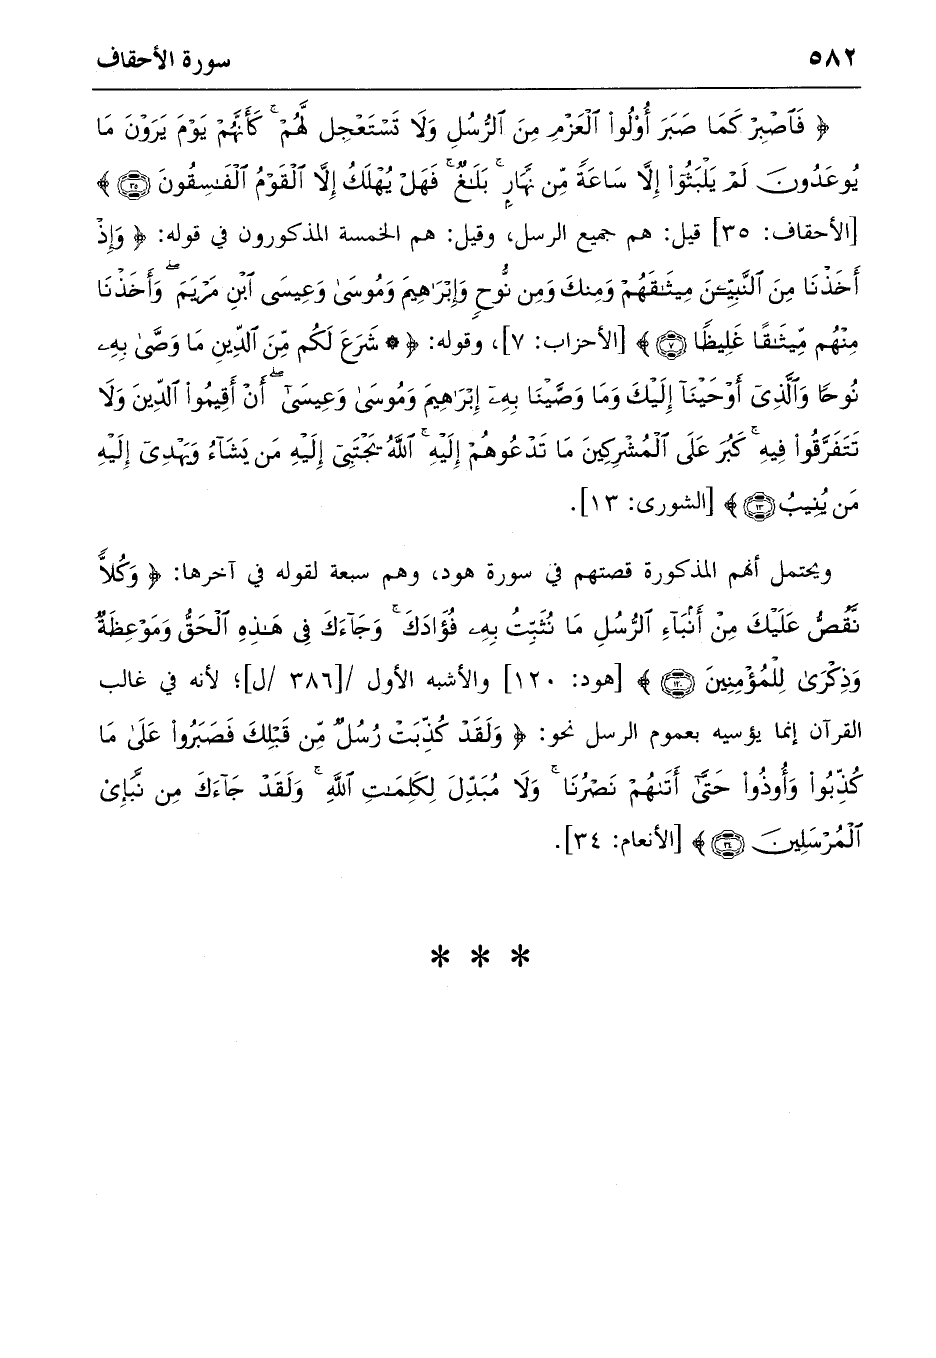 ٥٨٢ سورة الأحقاف
﴿ فَٱصْبِرْ كَمَا صَبَرَ أُوْلُواْ ٱلْعَزْمِ مِنَ ٱلرُّسُلِ وَلَا تَسْتَعْجِل لَّهُمْ ۚ كَأَنَّهُمْ يَوْمَ يَرَوْنَ مَا
يُوعَدُونَ لَمْ يَلْبَثُوٓاْ إِلَّا سَاعَةً مِّن نَّهَارٍۭ ۚ بَلَٰغٌ ۚ فَهَلْ يُهْلَكُ إِلَّا ٱلْقَوْمُ ٱلْفَٰسِقُونَ ۝٣٥ ﴾
[الأحقاف: ٣٥] قيل: هم جميع الرسل، وقيل: هم الخمسة المذكورون في قوله: ﴿ وَإِذْ
أَخَذْنَا مِنَ ٱلنَّبِيِّـۧنَ مِيثَٰقَهُمْ وَمِنكَ وَمِن نُّوحٍ وَإِبْرَٰهِيمَ وَمُوسَىٰ وَعِيسَى ٱبْنِ مَرْيَمَ ۖ وَأَخَذْنَا
مِنْهُم مِّيثَٰقًا غَلِيظًا ۝٧ ﴾ [الأحزاب: ٧]، وقوله: ﴿ ۞ شَرَعَ لَكُم مِّنَ ٱلدِّينِ مَا وَصَّىٰ بِهِۦ
نُوحًا وَٱلَّذِىٓ أَوْحَيْنَآ إِلَيْكَ وَمَا وَصَّيْنَا بِهِۦٓ إِبْرَٰهِيمَ وَمُوسَىٰ وَعِيسَىٰٓ ۖ أَنْ أَقِيمُواْ ٱلدِّينَ وَلَا
تَتَفَرَّقُواْ فِيهِ ۚ كَبُرَ عَلَى ٱلْمُشْرِكِينَ مَا تَدْعُوهُمْ إِلَيْهِ ۚ ٱللَّهُ يَجْتَبِىٓ إِلَيْهِ مَن يَشَآءُ وَيَهْدِىٓ إِلَيْهِ
مَن يُنِيبُ ۝١٣ ﴾ [الشورى: ١٣].
ويحتمل أنهم المذكورة قصتهم في سورة هود، وهم سبعة لقوله في آخرها: ﴿ وَكُلًّا
نَّقُصُّ عَلَيْكَ مِنْ أَنۢبَآءِ ٱلرُّسُلِ مَا نُثَبِّتُ بِهِۦ فُؤَادَكَ ۚ وَجَآءَكَ فِى هَٰذِهِ ٱلْحَقُّ وَمَوْعِظَةٌ
وَذِكْرَىٰ لِلْمُؤْمِنِينَ ۝١٢٠ ﴾ [هود: ١٢٠] والأشبه الأول /[٣٨٦ /ل]؛ لأنه في غالب
القرآن إنما يؤسيه بعموم الرسل نحو: ﴿ وَلَقَدْ كُذِّبَتْ رُسُلٌ مِّن قَبْلِكَ فَصَبَرُواْ عَلَىٰ مَا
كُذِّبُواْ وَأُوذُواْ حَتَّىٰٓ أَتَىٰهُمْ نَصْرُنَا ۚ وَلَا مُبَدِّلَ لِكَلِمَٰتِ ٱللَّهِ ۚ وَلَقَدْ جَآءَكَ مِن نَّبَإِىْ
ٱلْمُرْسَلِينَ ۝٣٤ ﴾ [الأنعام: ٣٤].
* * *